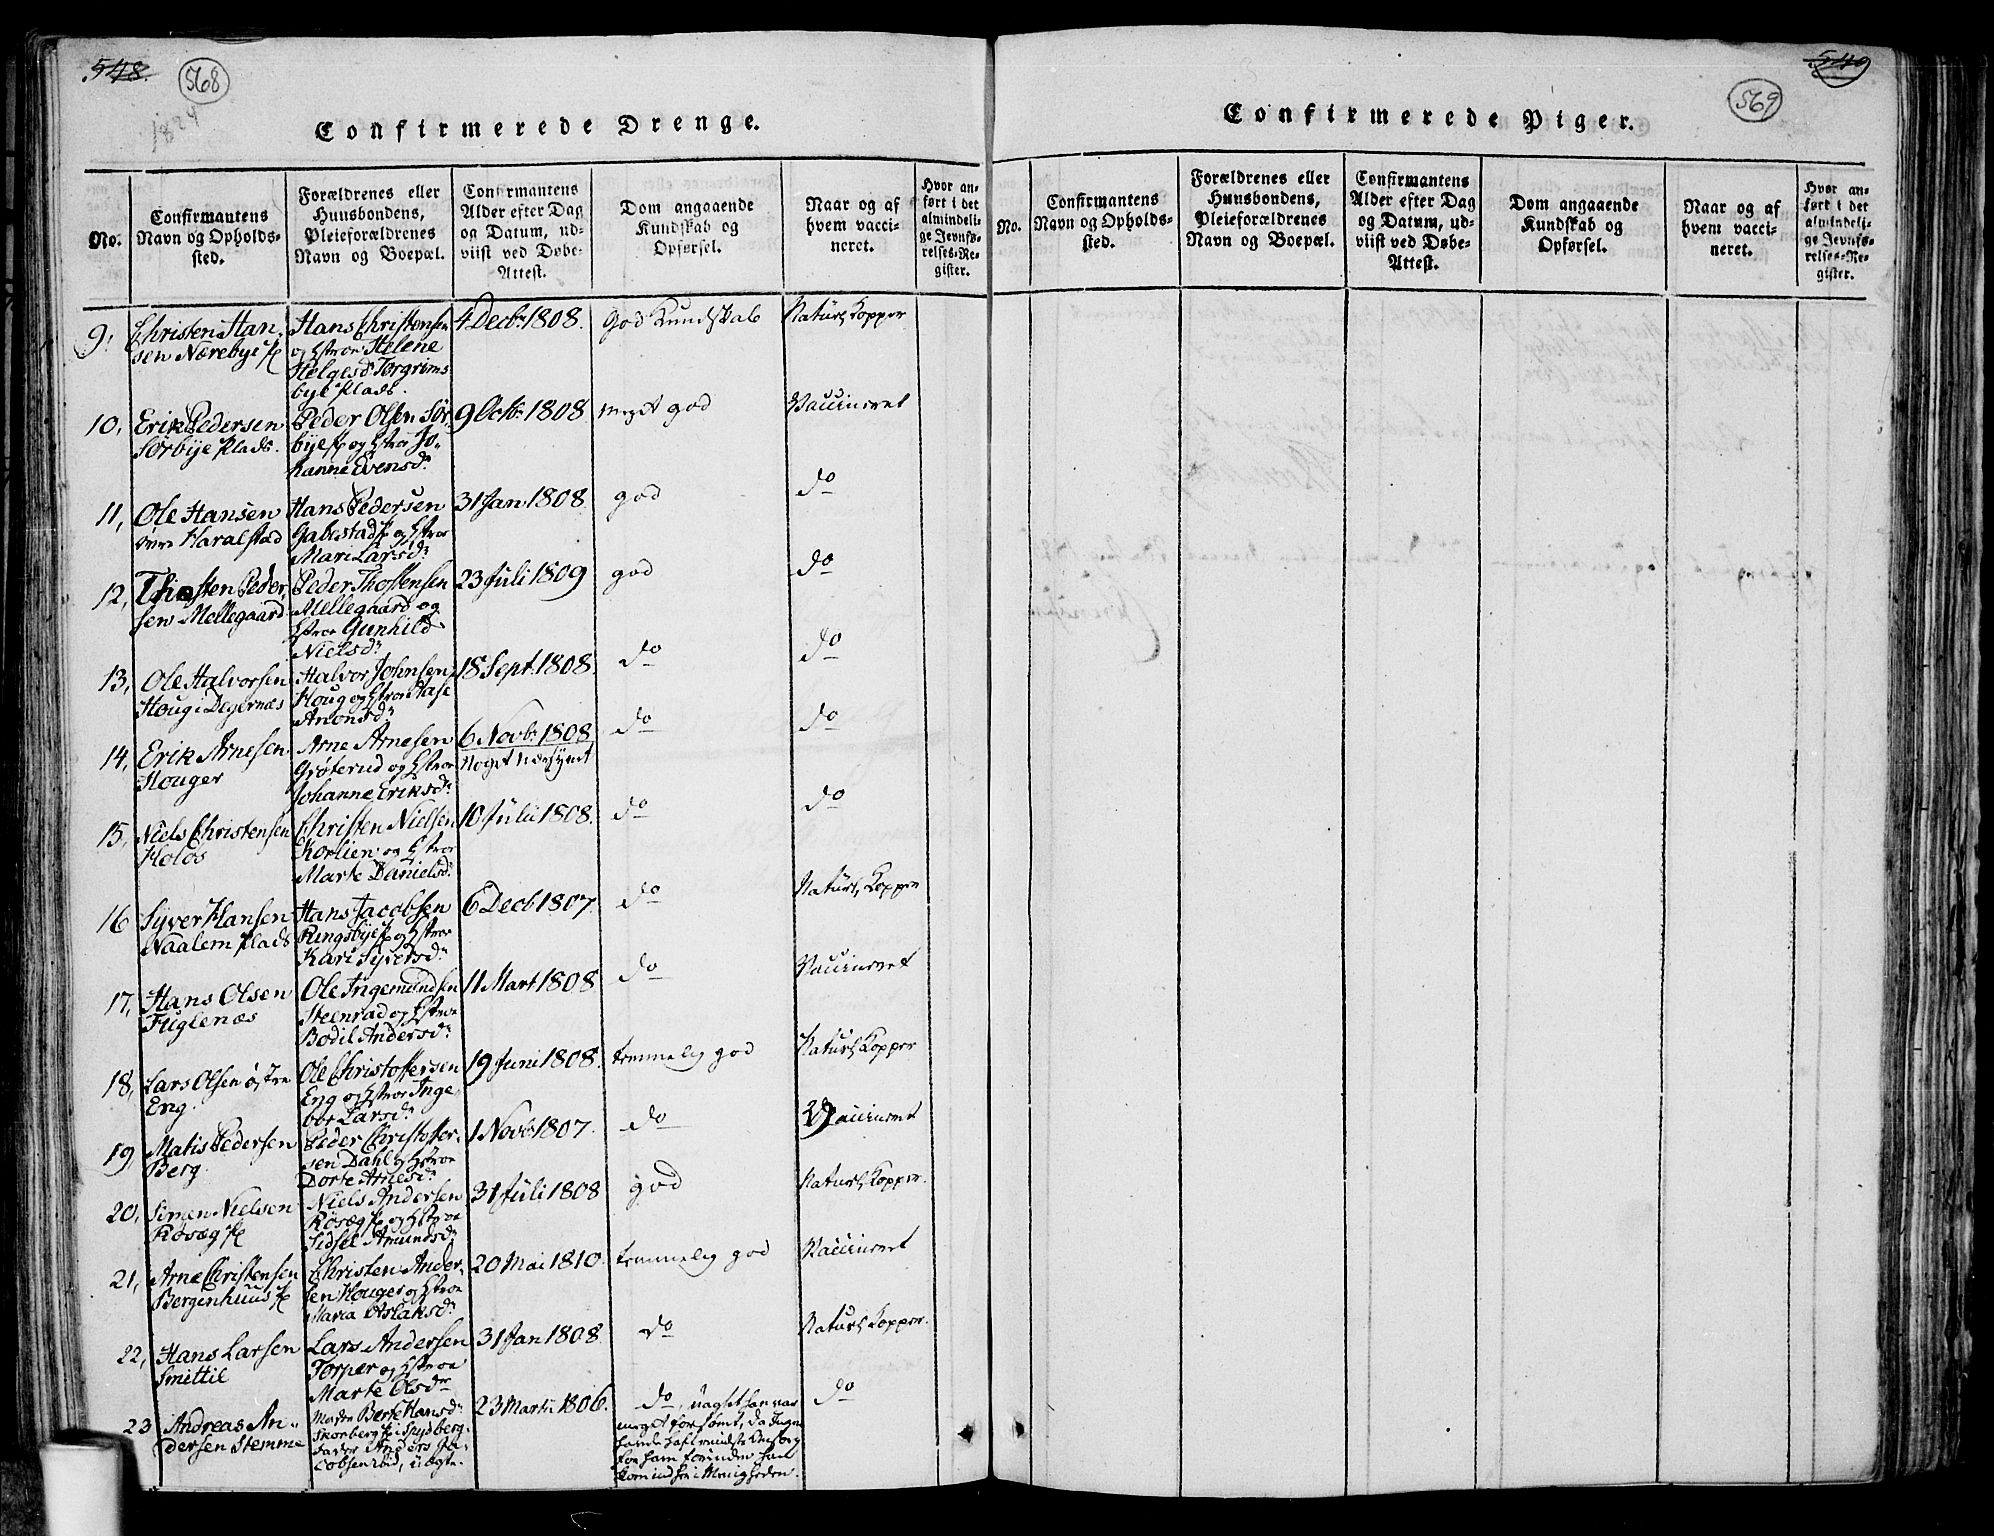 548.
568
1824
Confirmerede Drenge.
No.
Confirmantens
Navn og Opholds-
sted.
Forældrenes eller
Huusbondens,
Pleieforældrenes
Navn og Boepæl.
Confirmantens
Alder efter Dag
og Datum, ud-
viist ved Døbe-
Attest.
Dom angaaende
Kundskab og
Opførsel.
Naar og af
hvem vacci-
neret.
Hvor an-
ført i det
almindeli-
ge Jevnfø-
relses-Re-
gister.
9.
Christen Han-
sen Nærebye
Hans Christensen
og Hstroe Helene
Helgesdr Torgrims-
bye Plads.
4 Decbr 1808.
God Kundskab
Naturl. Kopper
10,
Erik Pedersen
Sørbye Plads.
Peder Olsen Sør-
bye og Hstroe Jo-
hanne Evensdr
9 Octbr 1808
meget god
Vaccineret
11,
Ole Hansen
Haralstad
Hans Pedersen
Gabestad og Hstroe
Mari Larsdr
31 Jan. 1808.
god
do
12,
Thosten Peder-
sen Mellegaard
Peder Thostensen
Mellegaard og
Hstroe Gunhild
Nielsdr
23 Juli 1809
god
do
13,
Ole Halvorsen
Houg i Degernæs
Halvor Johnsen
Houg og Hstroe Aase
Amonsdr
18 Sept. 1808.
do
do
14,
Erik Arnesen
Houger
Arne Arnesen
Grøterud og Hstroe
Johanne Eriksdr
6 Novbr 1808
Noget nærsynt
do
do
15,
Niels Christensen
Holøs
Christen Nielsen
Korlien og Hstroe
Marte Danielsdr
10 Julii 1808.
do
do
16
Syver Hansen
Naalem Plads
Hans Jacobsen
Ringsbye og Hstroe
Kari Syversdr
6 Decb 1807.
do
Naturl. Kopper
17,
Hans Olsen
Fuglenæs
Ole Ingemundsen
Steenrad og Hstroe
Bodil Andersdr
11 Mart 1808
do
Vaccineret
18,
Lars Olsen østre
Eng.
Ole Christoffersen
Eng og Hstroe Inge
bor Larsdr
19 Juni 1808.
temmelig god
Naturl. Kopper
19
Matis Pedersen
Berg.
Peder Christoffer-
sen Dahl og Hstroe
Dorte Arnesdr
1 Novb 1807.
do
Vaccineret
20,
Simen Nielsen
Røsæg
Niels Andersen
Røsæg og Hstroe
Sidsel Amundsdr
31 Juli 1808
god
Naturl. Kopper.
21,
Arne Christensen
Bergenhuus
Christen Ander-
sen Houger og Hstroe
Maria Aslaksdr
20 Mai 1810.
temmelig god
Vaccineret
22,
Hans Larsen
Smittil
Lars Andersen
Torper og Hstroe
Marte Olsdr
31 Jan 1808.
do
Naturl. Kopper.
23
Andreas An-
dersen Stemme
Moder Berte Hansdr
Skorberg i Spydberg.
Fader Anders Ja-
cobsen ibid, uægte.
23 Martii 1806.
do, uagtet han var
meget forsømt, da Ingen
havde haft mindste Omsorg
for ham førinden han
kom ind her i Menigheden.
do
549
569
Confirmerede Piger.
No.
Confirmantens
Navn og Opholds-
sted.
Forældrenes eller
Huusbondens,
Pleieforældrenes
Navn og Boepæl.
Confirmantens
Alder efter Dag
og Datum, ud-
viist ved Døbe-
Attest.
Dom angaaende
Kundskab og
Opførsel.
Naar og af
hvem vacci-
neret.
Hvor an-
ført i det
almindeli-
ge Jevnfø-
relses-Re-
gister.